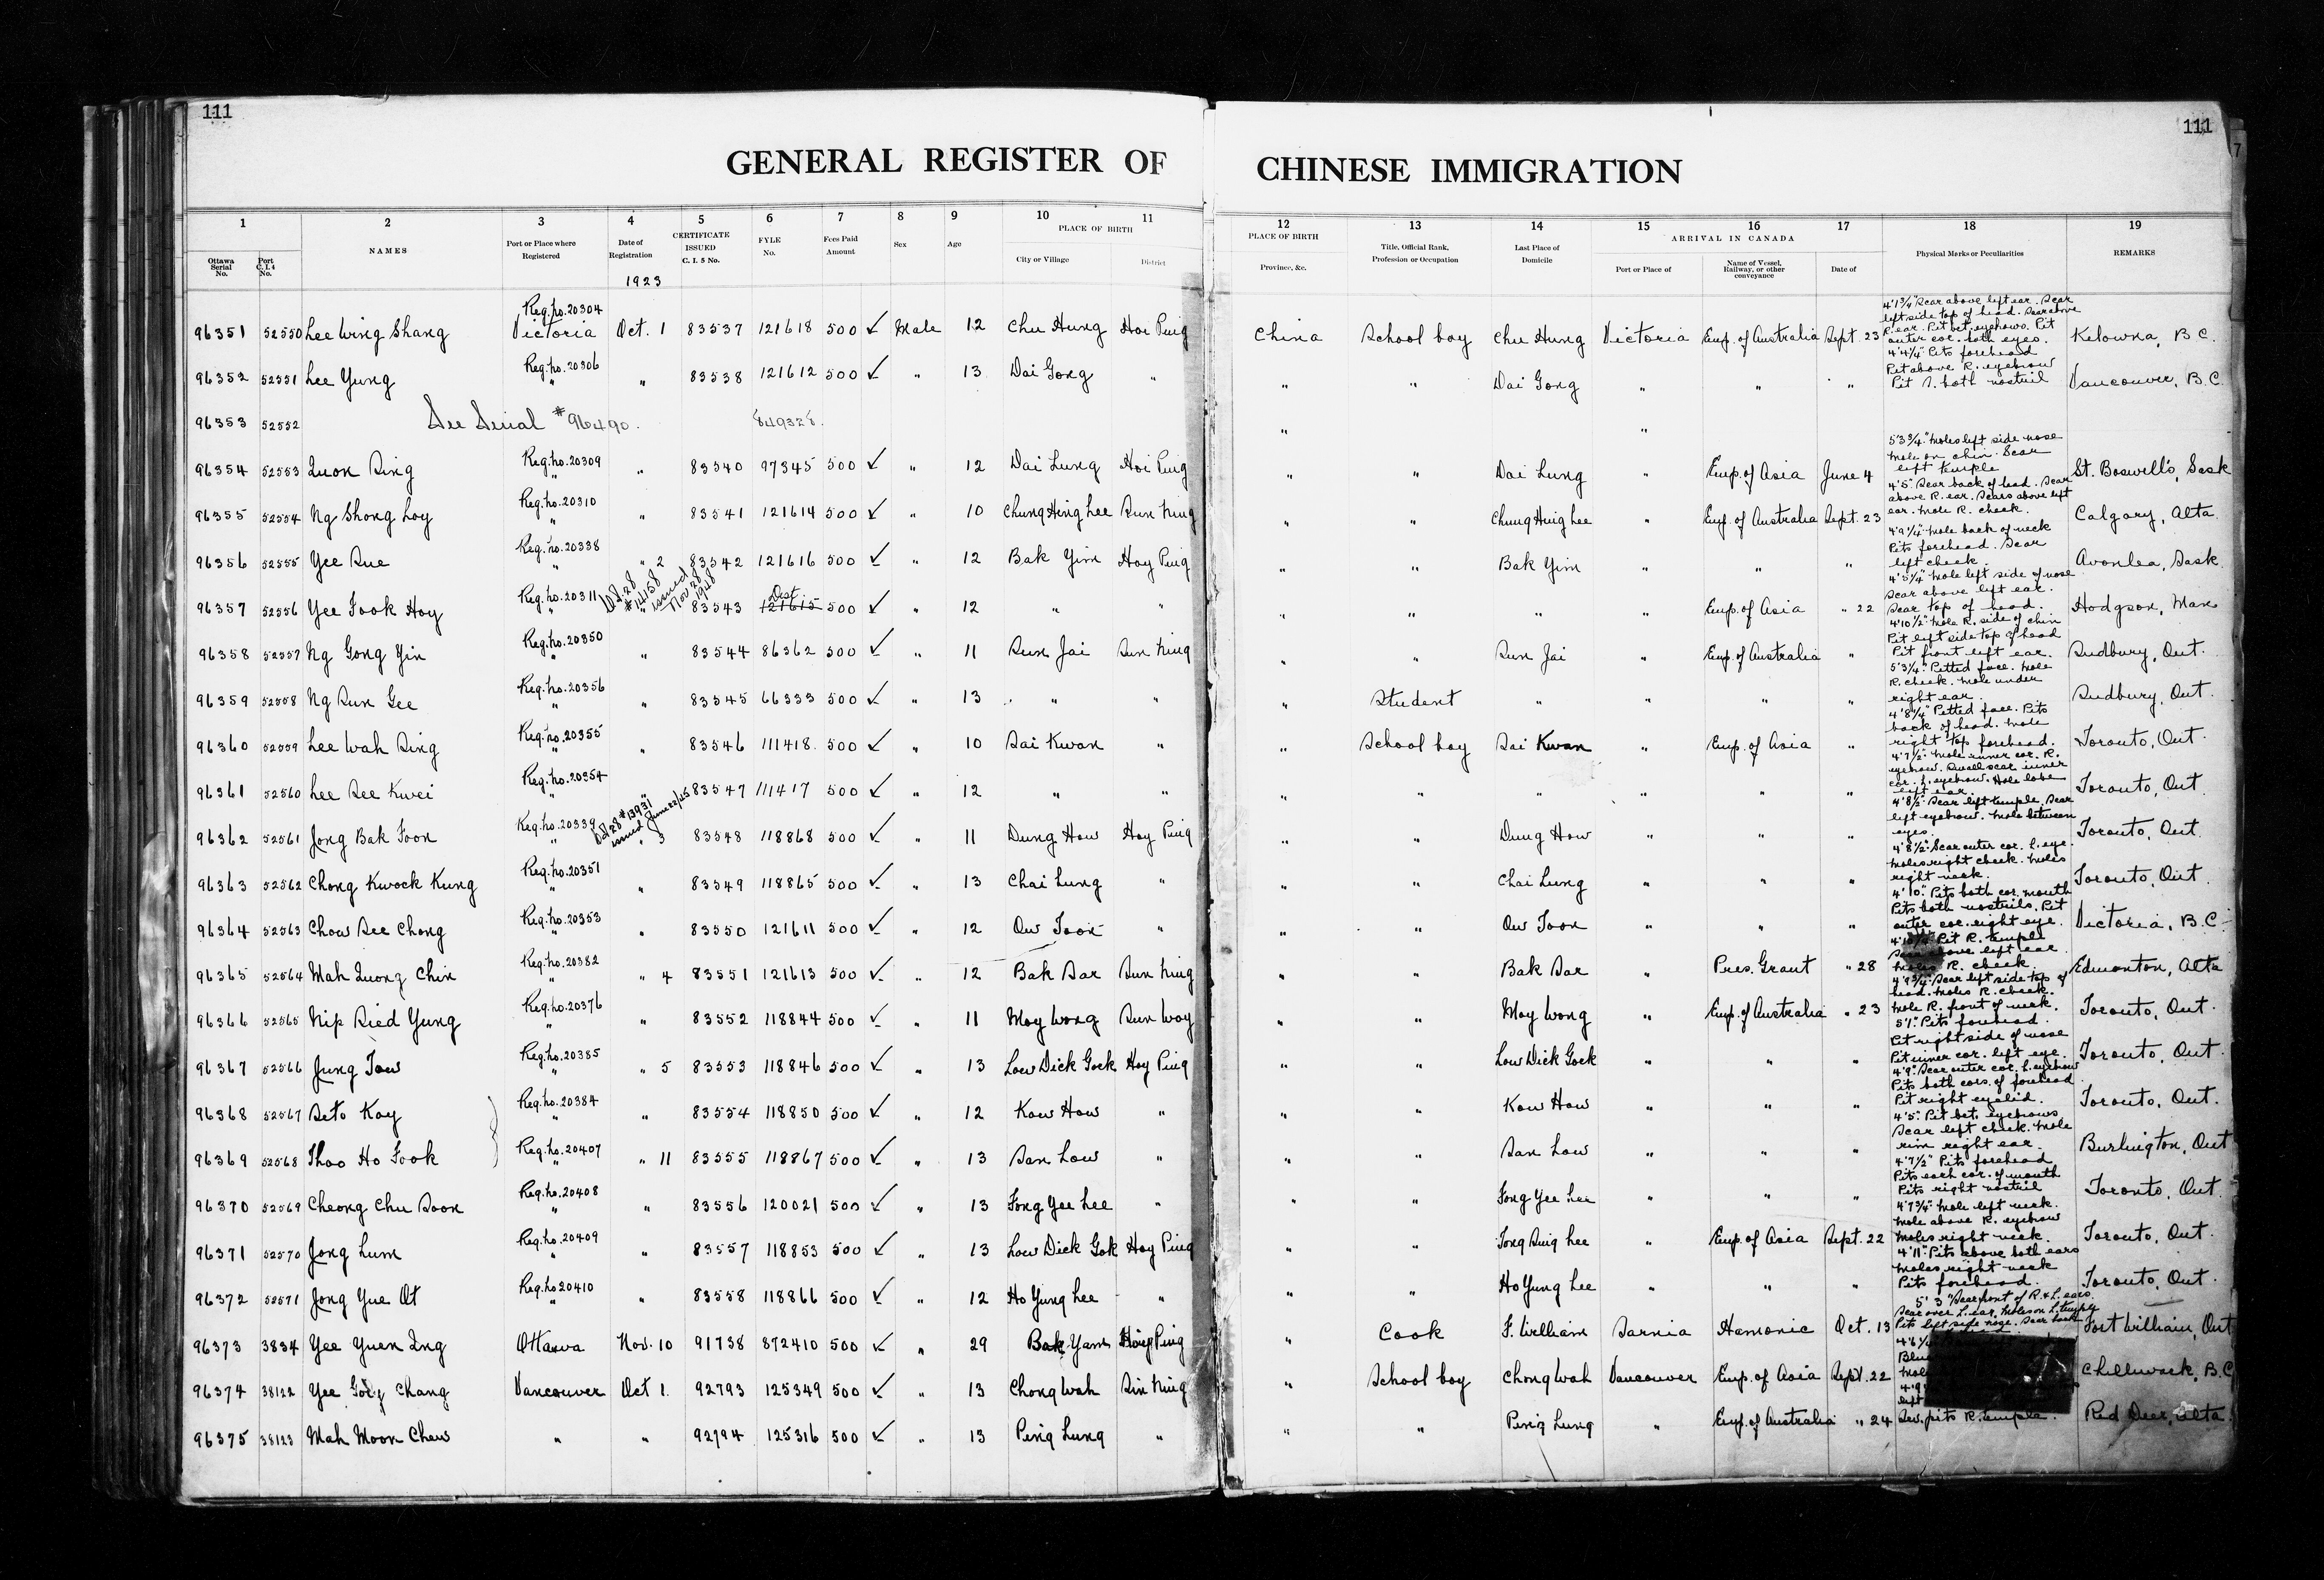 111
111
7
GENERAL REGISTER OF CHINESE IMMIGRATION
1 2 3 4 5 6 7 8 9 10 11 12 13 14 15 16 17 18 19
Ottawa Serial No. Port C. I. 4 No. NAMES Port or Place where Registered Date of Registration CERTIFICATE ISSUED C. I. 5 No. FYLE No. Fees Paid Amount Sex Age PLACE OF BIRTH City or Village District PLACE OF BIRTH Province, &c. Title, Official Rank, Profession or Occupation Last Place of Domicile ARRIVAL IN CANADA Port or Place of Name of Vessel, Railway, or other conveyance Date of Physical Marks or Peculiarities REMARKS
1923
96351 52550 Lee Wing Shang Reg. No. 20304 Victoria Oct. 1 83537 121618 500 ✓ Male 12 Chu Hung Hoi Ping China School boy Chu Hung Victoria Emp. of Australia Sept. 23 4'1¾" Scar above left ear. Scar left side top of head. Scar above R. ear. Pit bet. eyebrows. Pit outer cor. both eyes. Kelowna, B.C.
96352 52551 Lee Yung Reg. No. 20306 " " 83538 121612 500 ✓ " 13 Dai Gong " " " Dai Gong " " " 4'4¼" Pits forehead Pit above R. eyebrow Pit both nostril Vancouver, B.C.
96353 52552 See Serial #96490. 849328. " "
96354 52553 Quon Sing Reg. No. 20309 " " 83540 97345 500 ✓ " 12 Dai Lung Hoi Ping " " Dai Lung " Emp. of Asia June 4 5'3¾" Moles left side nose Mole on chin. Scar left temple St. Boswell's, Sask
96355 52554 Ng Shong Loy Reg. No. 20310 " 83541 121614 500 ✓ " 10 Chung Hing Lee Sun Ning " " Chung Hing Lee " Emp. of Australia Sept. 23 4'5" Scar back of head. Scar above R. ear. Scars above left ear. Mole R. cheek. Calgary, Alta.
96356 52555 Yee Sue Reg. No. 20338 " " 2 83542 121616 500 ✓ " 12 Bak Yim Hoy Ping " " Bak Yim " " " 4'9¼" Mole back of neck Pits forehead. Scar left cheek. Avonlea, Sask.
96357 52556 Yee Fook Hoy Reg. No. 20311 " #14158 issued Nov 28 1948 83543 Dest 121615 500 ✓ " 12 " " " " " " Emp. of Asia " 22 4'5¼" Mole left side of nose Scar above left ear. Scar top of head. Hodgson, Man
96358 52557 Ng Gong Yin Reg. No. 20350 " " 83544 86362 500 ✓ " 11 Sun Jai Sun Ning " " Sun Jai " Emp. of Australia " 4'10½" Mole R. side of chin Pit left side top of head Pit front left ear. Sudbury, Ont.
96359 52558 Ng Sun Gee Reg. No. 20356 " " 83545 66333 500 ✓ " 13 " " " Student " " " " 5'3¼" Pitted face. Mole R. cheek. Mole under right ear. Sudbury, Ont.
96360 52559 Lee Wah Sing Reg. No. 20355 " " 83546 111418 500 ✓ " 10 Sai Kwan " " School boy Sai Kwan " Emp. of Asia " 4'8¼" Pitted face. Pits back of head. Mole right top forehead. Toronto, Ont.
96361 52560 Lee See Kwei Reg. No. 20354 " " 83547 111417 500 ✓ " 12 " " " " " " " " 4'7½" Mole inner cor. R. eyebrow. Small scar inner cor. L. eyebrow. Hole lobe left ear. Toronto, Ont.
96362 52561 Jong Bak Foon Reg. No. 20339 " #13931 issued June 22/45 " 3 83548 118868 500 ✓ " 11 Dung How Hoy Ping " " Dung How " " " 4'8½" Scar left temple. Scar left eyebrow. Mole between eyes. Toronto, Ont.
96363 52562 Chong Kwock Kung Reg. No. 20351 " " 83549 118865 500 ✓ " 13 Chai Lung " " " Chai Lung " " " 4'8½" Scar outer cor. L. eye. Moles right cheek. Moles right neck. Toronto, Ont.
96364 52563 Chow See Chong Reg. No. 20353 " " 83550 121611 500 ✓ " 12 Ow Toon " " " Ow Toon " " " 4'10" Pits both cor. mouth Pits both nostrils. Pit outer cor. right eye. Victoria, B.C.
96365 52564 Mah Quong Chin Reg. No. 20382 " 4 83551 121613 500 ✓ " 12 Bak Sar Sun Ning " " Bak Sar " Pres. Grant " 28 Pit R. temple Scar above left ear Moles R. cheek. Edmonton, Alta
96366 52565 Nip Sied Yung Reg. No. 20376 " 83552 118844 500 ✓ " 11 Moy Wong Sun Woy " " Moy Wong " Emp. of Australia " 23 4'9¾" Scar left side top of head. Moles R. cheek. Mole R. front of neck. Toronto, Ont.
96367 52566 Jung Tow Reg. No. 20385 " " 5 83553 118846 500 ✓ " 13 Low Dick Gock Hoy Ping " " Low Dick Gock " " " 5'1" Pits forehead. Pit right side of nose Pit inner cor. left eye. Toronto, Ont.
96368 52567 Seto Kay Reg. No. 20384 " " 83554 118850 500 ✓ " 12 Kow How " " " Kow How " " " 4'9" Scar outer cor. L. eyebrow Pits both cors. of forehead Pit right eyelid. Toronto, Ont.
96369 52568 Thoo Ho Fook Reg. No. 20407 " " 11 83555 118867 500 ✓ " 13 San Low " " " San Low " " " 4'5" Pit bet. eyebrows Scar left cheek. Mole rim right ear. Burlington, Ont
96370 52569 Cheong Chu Soon Reg. No. 20408 " " 83556 120021 500 ✓ " 13 Fong Yee Lee " " " Fong Yee Lee " " " 4'7½" Pits forehead Pits each cor. of mouth Pits right nostril Toronto, Ont.
96371 52570 Jong Lum Reg. No. 20409 " " 83557 118853 500 ✓ " 13 Low Dick Gok Hoy Ping " " Tong Sing Lee " Emp. of Asia Sept. 22 4'7¾" Mole left neck. Mole above R. eyebrow Moles right neck. Toronto, Ont.
96372 52571 Jong Yue Ot Reg. No 20410 " " 83558 118866 500 ✓ " 12 Ho Yung Lee " " " Ho Yung Lee " " " 4'11" Pits above both ears Moles right neck Pits forehead. Toronto, Ont.
96373 3834 Yee Yuen Ing Ottawa Nov. 10 91738 872410 500 ✓ " 29 Bak Yam Hoy Ping " Cook F. William Sarnia Hamonic Oct. 13 5' 3" Scar front of R. & L. ears. Scar over L. ear. Moles on L. temple Pits left side nose. Fort William, Ont
96374 38122 Yee Chang Vancouver Oct 1. 92793 125349 500 ✓ " 13 Chong Wah Sin Ning " School boy Chong Wah Vancouver Emp. of Asia Sept. 22 Chilliwack, B.C.
96375 38123 Mah Moon Chew " " 92794 125316 500 ✓ " 13 Ping Lung " " " Ping Lung " Emp. of Australia " 24 left Sev. pits R. temple. Red Deer, Alta.